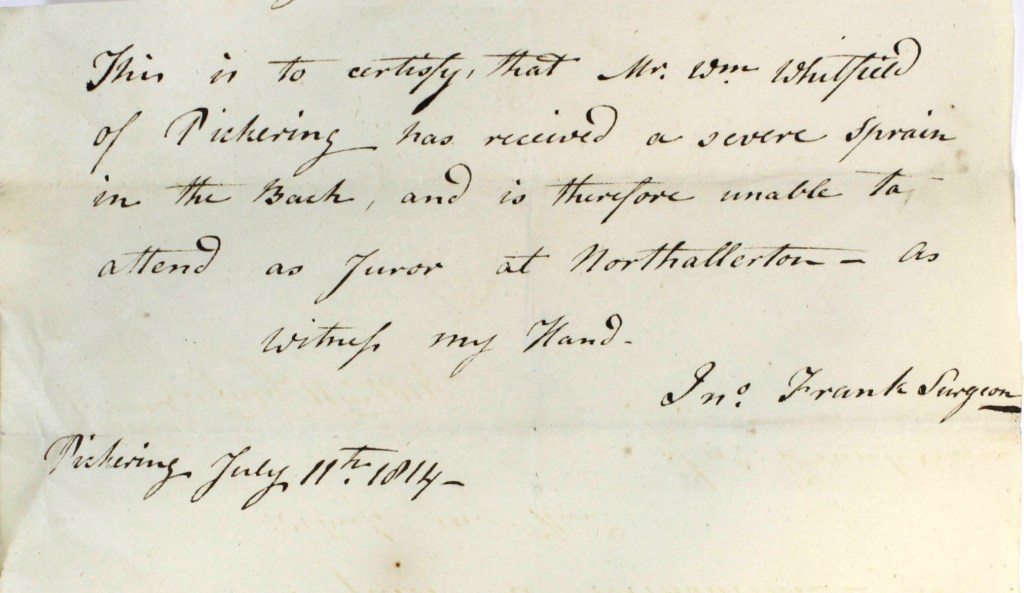 This is to certify, that Mr. Wm. Whitfield
of Pickering has received a severe Sprain
in the Back, and is therefore unable to
attend as Juror at Northallerton - as
witness my Hand -
Jno. Frank Surgeon
Pickering July 11th. 1814 -